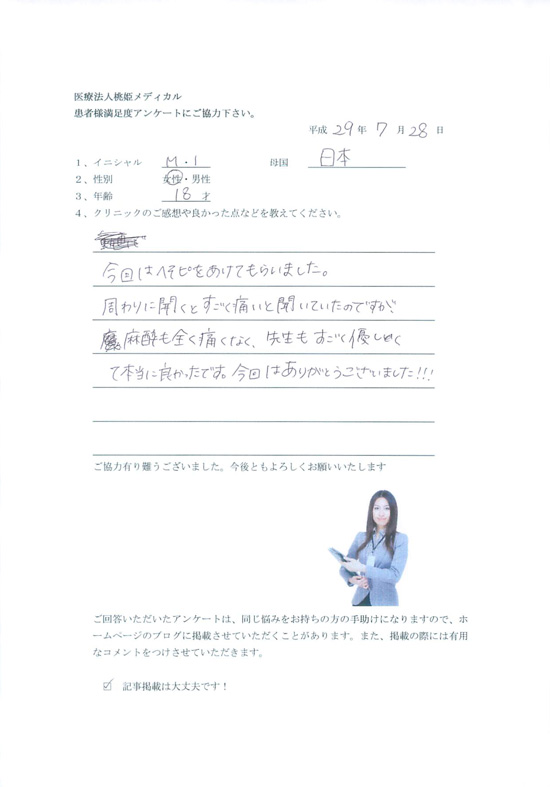 医療法人桃姫メディカル
患者様満足度アンケートにご協力下さい。
平成 29 年 7 月 28 日
1、イニシャル M・I 母国 日本
2、性別 女性・男性
3、年齢 18 才
4、クリニックのご感想や良かった点などを教えてください。
今回はへそピをあけてもらいました。
周わりに聞くとすごく痛いと聞いていたのですが、
麻酔も全く痛くなく、先生もすごく優しく
て本当に良かったです。今回はありがとうございました!!!
ご協力有り難うございました。今後ともよろしくお願いいたします
ご回答いただいたアンケートは、同じ悩みをお持ちの方の手助けになりますので、ホ
ームページのブログに掲載させていただくことがあります。また、掲載の際には有用
なコメントをつけさせていただきます。
☑ 記事掲載は大丈夫です！